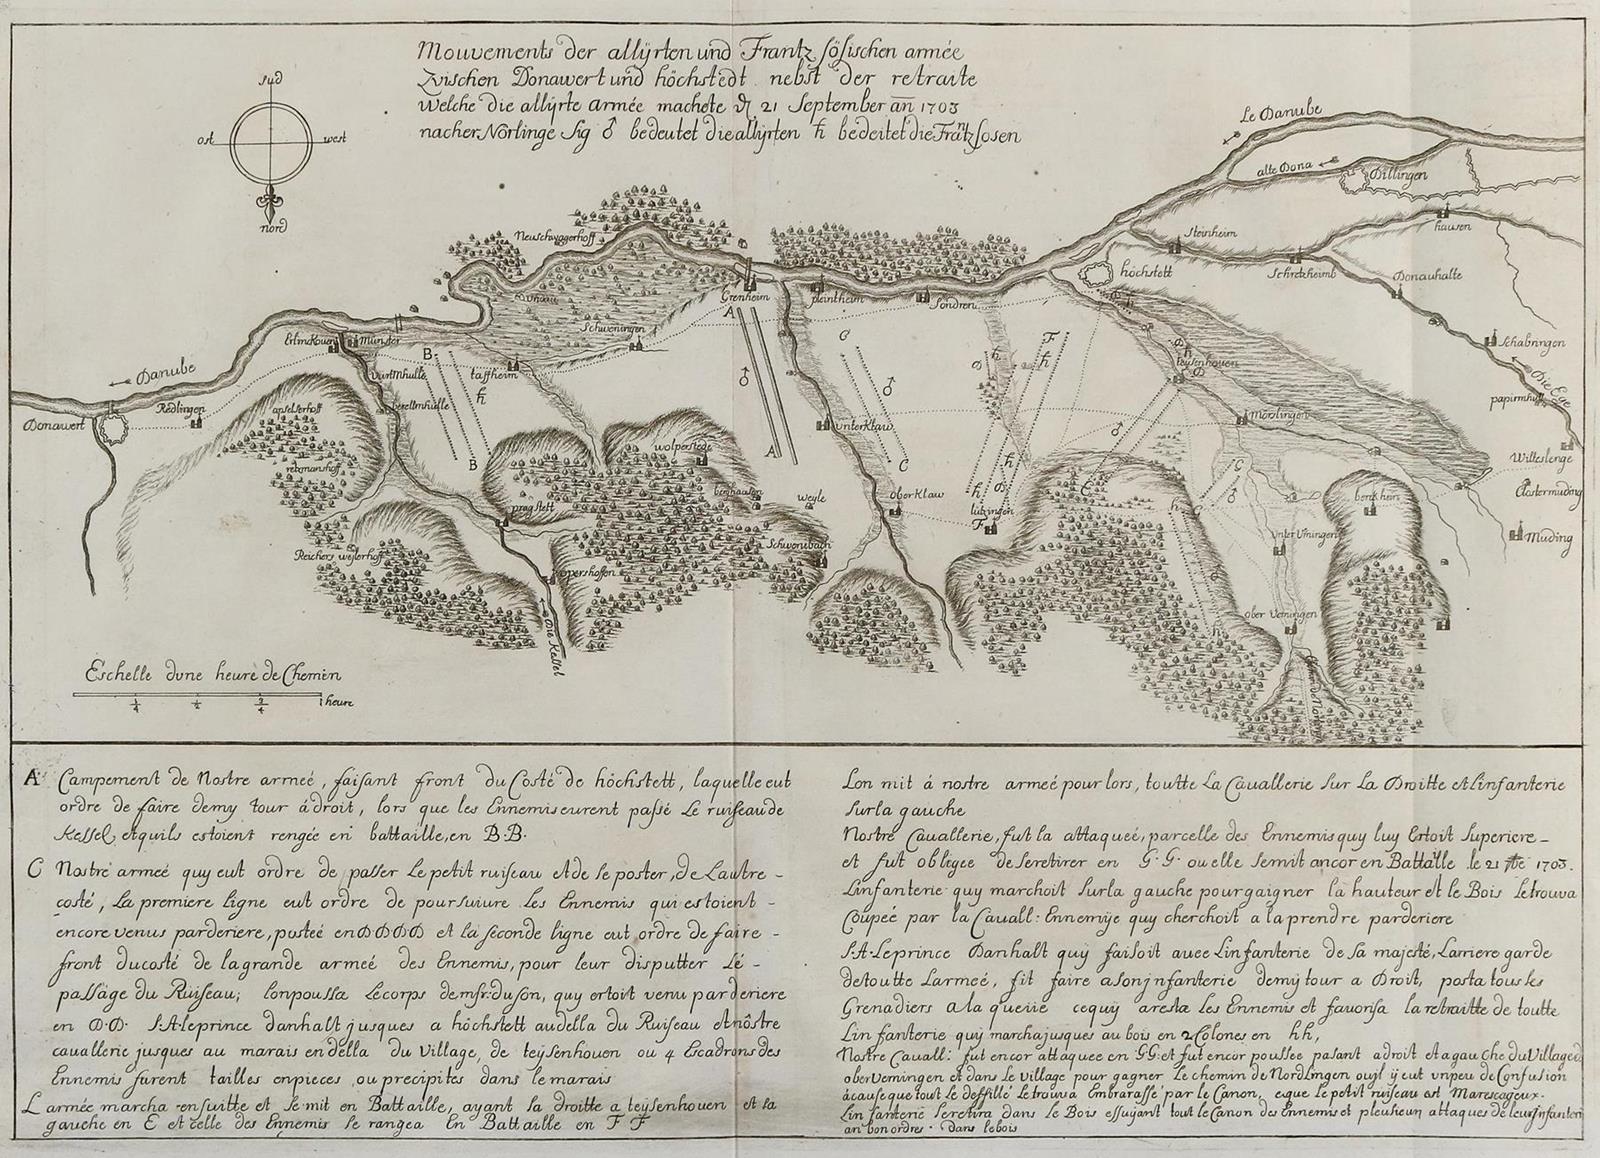 Mouvements der allÿrten und Frantzsösischen armée
Zvischen Donawert und höchstedt nebst der retraite
Welche die allÿrte armée machete 21 September an 1703
nacher Nörlinge sig ♂ bedeutet die allÿrten ♄ bedeitet die Frantzsosen
sud
ost
west
nord
Le Danube
alte Dona
Dillingen
Steinheim
hausen
Schretzheimb
Donauhalte
höchstett
Schabringen
Die Ege
papirmhull
Witteslenge
Clostermuding
Muding
Neuschwagerhoff
Donau
Grenheim
pleintheim
Sondren
Schweningen
Erlinckouen
Munster
Danube
Donawert
Redlingen
vurtmhulle
berettmhulle
taffheim
apfelterhoff
rebmanshof
Reichers weÿlerhoff
pragstett
opershoffen
Die Kessel
wolperstede
berghausen
weÿle
Schwenibach
unterKlaw
oberKlaw
lutzingen
teÿsenhouen
Mörslingen
berckheim
unter Viningen
ober Vemingen
A
A
B
B
C
C
F
F
G
G
Eschelle dune heure de Chemin
1/4
1/2
3/4
1 heure
A Campement de Nostre armeé, faisant front du Costé de höchstett, laquelle eut
ordre de faire demy tour á droit, lors que les Ennemis eurent passé Le ruiseau de
Kessel, et quils estoient rengée en battaille, en B.B.
C Nostre armeé quy eut ordre de passer Le petit ruiseau et de se poster, de Lautre -
costé, La premiere ligne eut ordre de poursuiure Les Ennemis qui estoient -
encore venus parderiere, posteé en D D D D et la seconde ligne eut ordre de faire -
front du costé de la grande armeé des Ennemis, pour leur disputter Lé -
passage du Ruiseau; lonpoussa Le corps de msr. duson, quy ertoit venu parderiere
en D.D. S.A. leprince danhalt jusques a höchstett au della du Ruiseau et nôstre
cauallerie jusques au marais en della du Village, de teÿsenhouen ou 4 Escadrons des
Ennemis furent tailles en pieces, ou precipites dans le marais
L armée marcha ensuitte et se mit en Battaille, ayant sa droitte a teÿsenhouen et sa
gauche en E et celle des Ennemis se rangea En Battaille en F F
Lon mit á nostre armeé pour lors, toutte La Cauallerie sur La Droitte et linfanterie
sur la gauche
Nostre Cauallerie, fut la attaqueé, par celle des Ennemis quy luy Ertoit Superiere -
et fut obligee de se retirer en G.G. ou elle se mit ancor en Battâlle le 21 7be 1703.
Linfanterie quy marchoit sur la gauche pour gaigner la hauteur et le Bois se trouva
Coupeé par la Cauall: Ennemije quy cherchoit a la prendre parderiere
S.A. Leprince Danhalt quÿ faisoit auec Linfanterie de sa majesté, Larriere garde
de toutte Larmeé, fit faire a son jnfanterie demÿ tour a Droit, posta tous les
Grenadiers a la queüe ce quÿ aresta les Ennemis et fauorisa la retraitte de toutte
Linfanterie quÿ marcha jusques au bois en 2 Colones en hh,
Nostre Cauall: fut encor attaquee en G G et fut encor poussee pasant a droit et a gauche du Village d
oberVemingen et dans Le village pour gagner Le chemin de Nordlingen ou jl ÿ eut un peu de Confusion
á cause que tout le deffillé se trouva Embrarassé par le Canon, e que Le petit ruiseau est Marescageux.
Linfanterie se retira dans Le Bois essuÿant tout le Canon des Ennemis et pleusieurs attaques de leur jnfanteri
an bon ordres. dans lebois